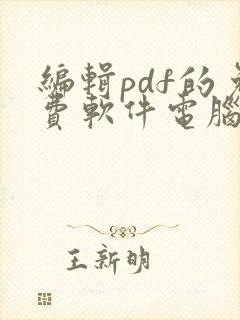 編輯pdf的免
費軟件電腦
王新明